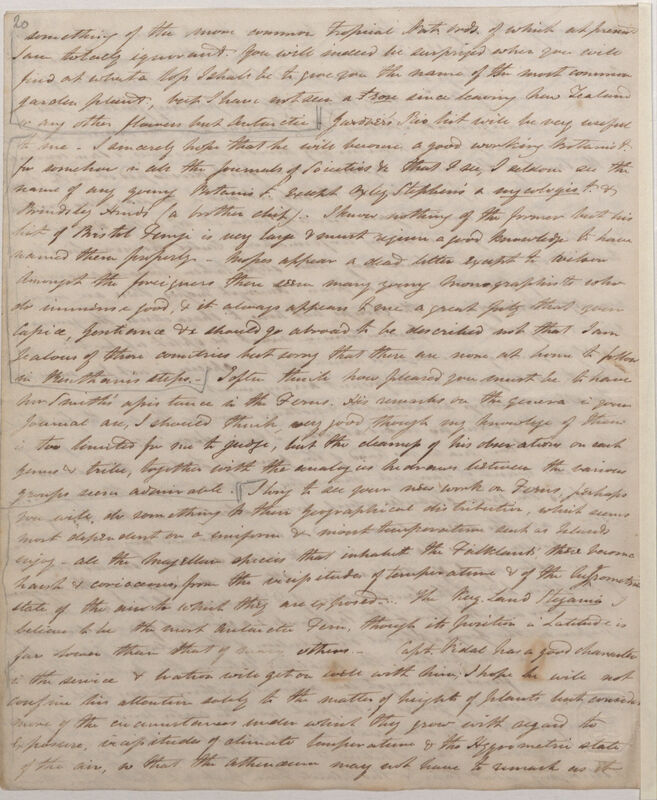 20
something of the more common tropical Nat. ords. of which at present
I am totally ignorant. You will indeed be surprized when you will
find at what a loss I shall be to give you the name of the most common
garden plant, but I have not seen a rose since leaving New Zealand
or any other flowers but Antarctic. Gardner's Rio list will be very useful
to me - I sincerely hope that he will become a good working botanist
for somehow in all the Journals of Societies &c that I see, I seldom see the
name of any young Botanist except Stephens a mycologist &
Brindsley Hinds (a brother chip). I know nothing of the former but his
list of Bristol Fungi is very large & must require a good knowledge to have
named them properly - Mosses appear a dead letter except to Wilson
Amongst the foreigners there seem many young Monographists who
do immense good, & it always appears to me a great pity that your
Gentianeae &c should go abroad to be described not that I am
jealous of those countries but sorry that there are none at home to follow
in Bentham's steps. - I often think how pleased you must be to have
Mr Smith's assistance in the Ferns. His remarks on the genera in your
Journal are, I should think very good though my knowledge of them
is too limited for me to judge, but the clearness of his observations on each
genus & tribe, together with the analogies he draws between the various
groups seem admirable. I long to see your new work on Ferns, perhaps
you will do something to their geographical distribution, which seems
most dependent on a uniform & moist temperature such as Islands
enjoy - all the Magellan species that inhabit the Falklands there become
harsh & coriaceous from the vicissitudes of temperature & of the Hygrometric
state of the air to which they are exposed. The Kerg. Land I
believe to be the most Antarctic Fern, though its position in Latitude is
far lower than that of many others. - Capt. Vidal has a good character
in the service & will get on well with him; I hope he will not
confine his attention solely to the matter of height of plants but consider
more of the circumstances under which they grow with regard to
exposure, vicissitudes of climate temperature & the Hygrometric state
of the air, so that the Athenaeum may not have to remark as it